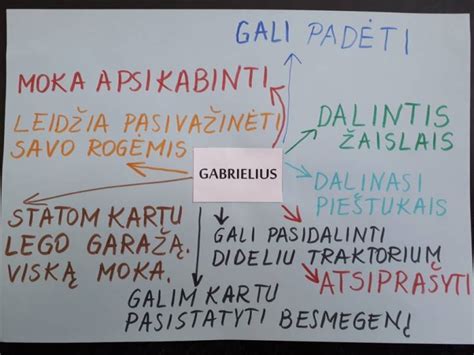 GALI PADĖTI
MOKA APSIKABINTI
LEIDŽIA PASIVAŽINĖTI
SAVO ROGĖMIS
DALINTIS
ŽAISLAIS
GABRIELIUS
DALINASI
PIEŠTUKAIS
STATOM KARTU
LEGO GARAŽĄ.
VISKĄ MOKA.
GALI PASIDALINTI
DIDELIU TRAKTORIUM
ATSIPRAŠYTI
GALIM KARTU
PASISTATYTI BESMEGENĮ